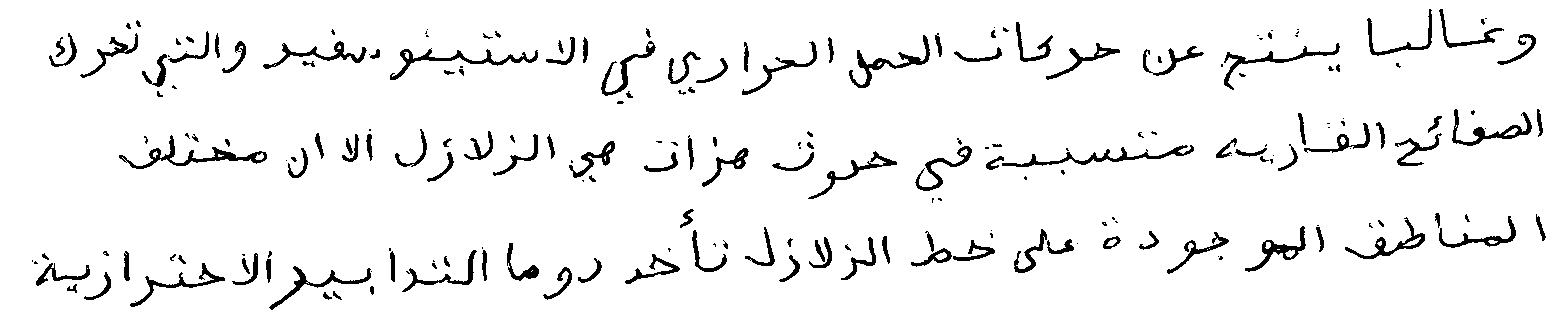 وغالبا ينتج عن حركات الحمل الحراري في الاستينوسفير والتي تحرك
الصفائح القاريه متسببة في حدوث هزات هي الزلازل الا ان مختلف
المناطق الموجودة على خط الزلازل تأخد دوما التدابير الاحترازية